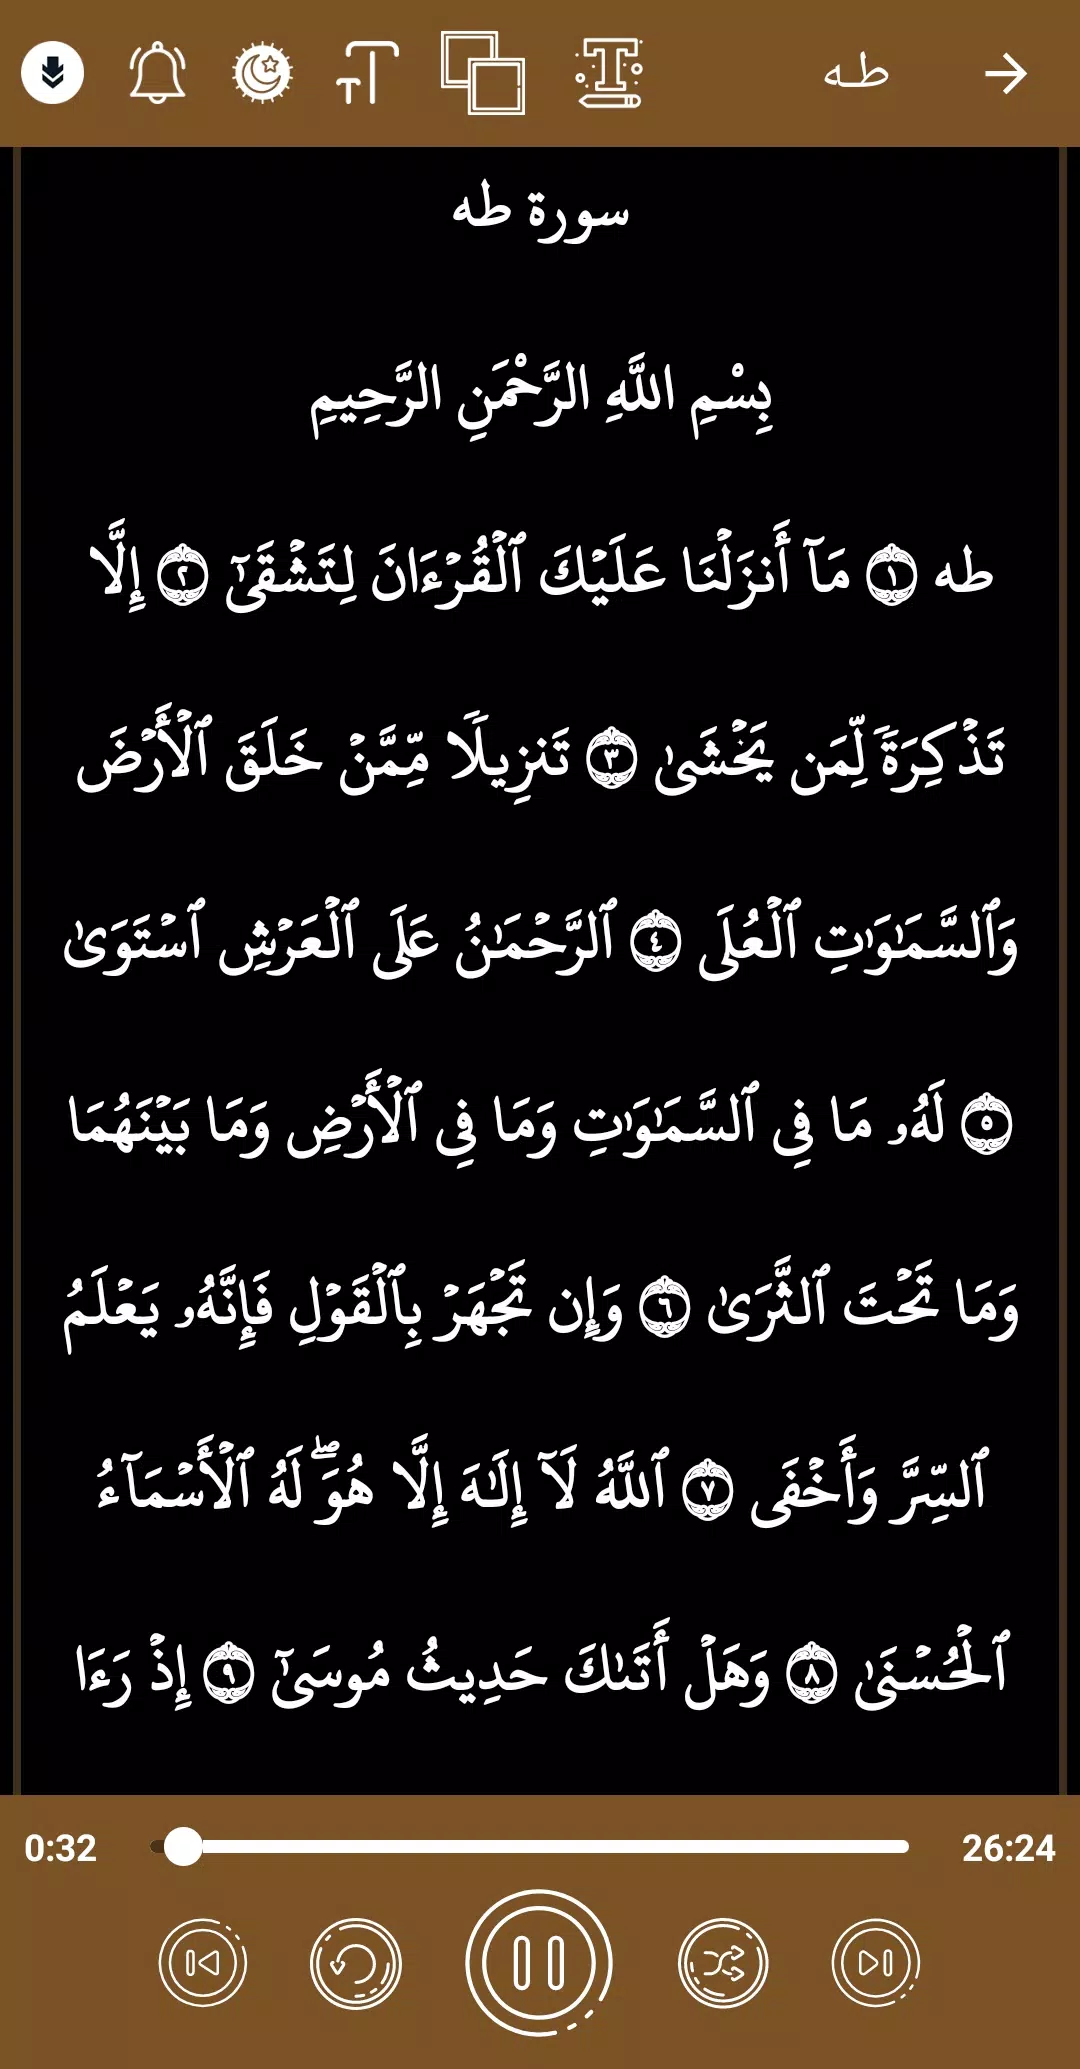 طـه
سورة طه
بِسْمِ اللَّهِ الرَّحْمَنِ الرَّحِيمِ
طه ١ مَآ أَنزَلْنَا عَلَيْكَ ٱلْقُرْءَانَ لِتَشْقَىٰٓ ٢ إِلَّا
تَذْكِرَةً لِّمَن يَخْشَىٰ ٣ تَنزِيلًا مِّمَّنْ خَلَقَ ٱلْأَرْضَ
وَٱلسَّمَٰوَٰتِ ٱلْعُلَى ٤ ٱلرَّحْمَٰنُ عَلَى ٱلْعَرْشِ ٱسْتَوَىٰ
٥ لَهُۥ مَا فِى ٱلسَّمَٰوَٰتِ وَمَا فِى ٱلْأَرْضِ وَمَا بَيْنَهُمَا
وَمَا تَحْتَ ٱلثَّرَىٰ ٦ وَإِن تَجْهَرْ بِٱلْقَوْلِ فَإِنَّهُۥ يَعْلَمُ
ٱلسِّرَّ وَأَخْفَى ٧ ٱللَّهُ لَآ إِلَٰهَ إِلَّا هُوَۖ لَهُ ٱلْأَسْمَآءُ
ٱلْحُسْنَىٰ ٨ وَهَلْ أَتَىٰكَ حَدِيثُ مُوسَىٰٓ ٩ إِذْ رَءَا
0:32 26:24